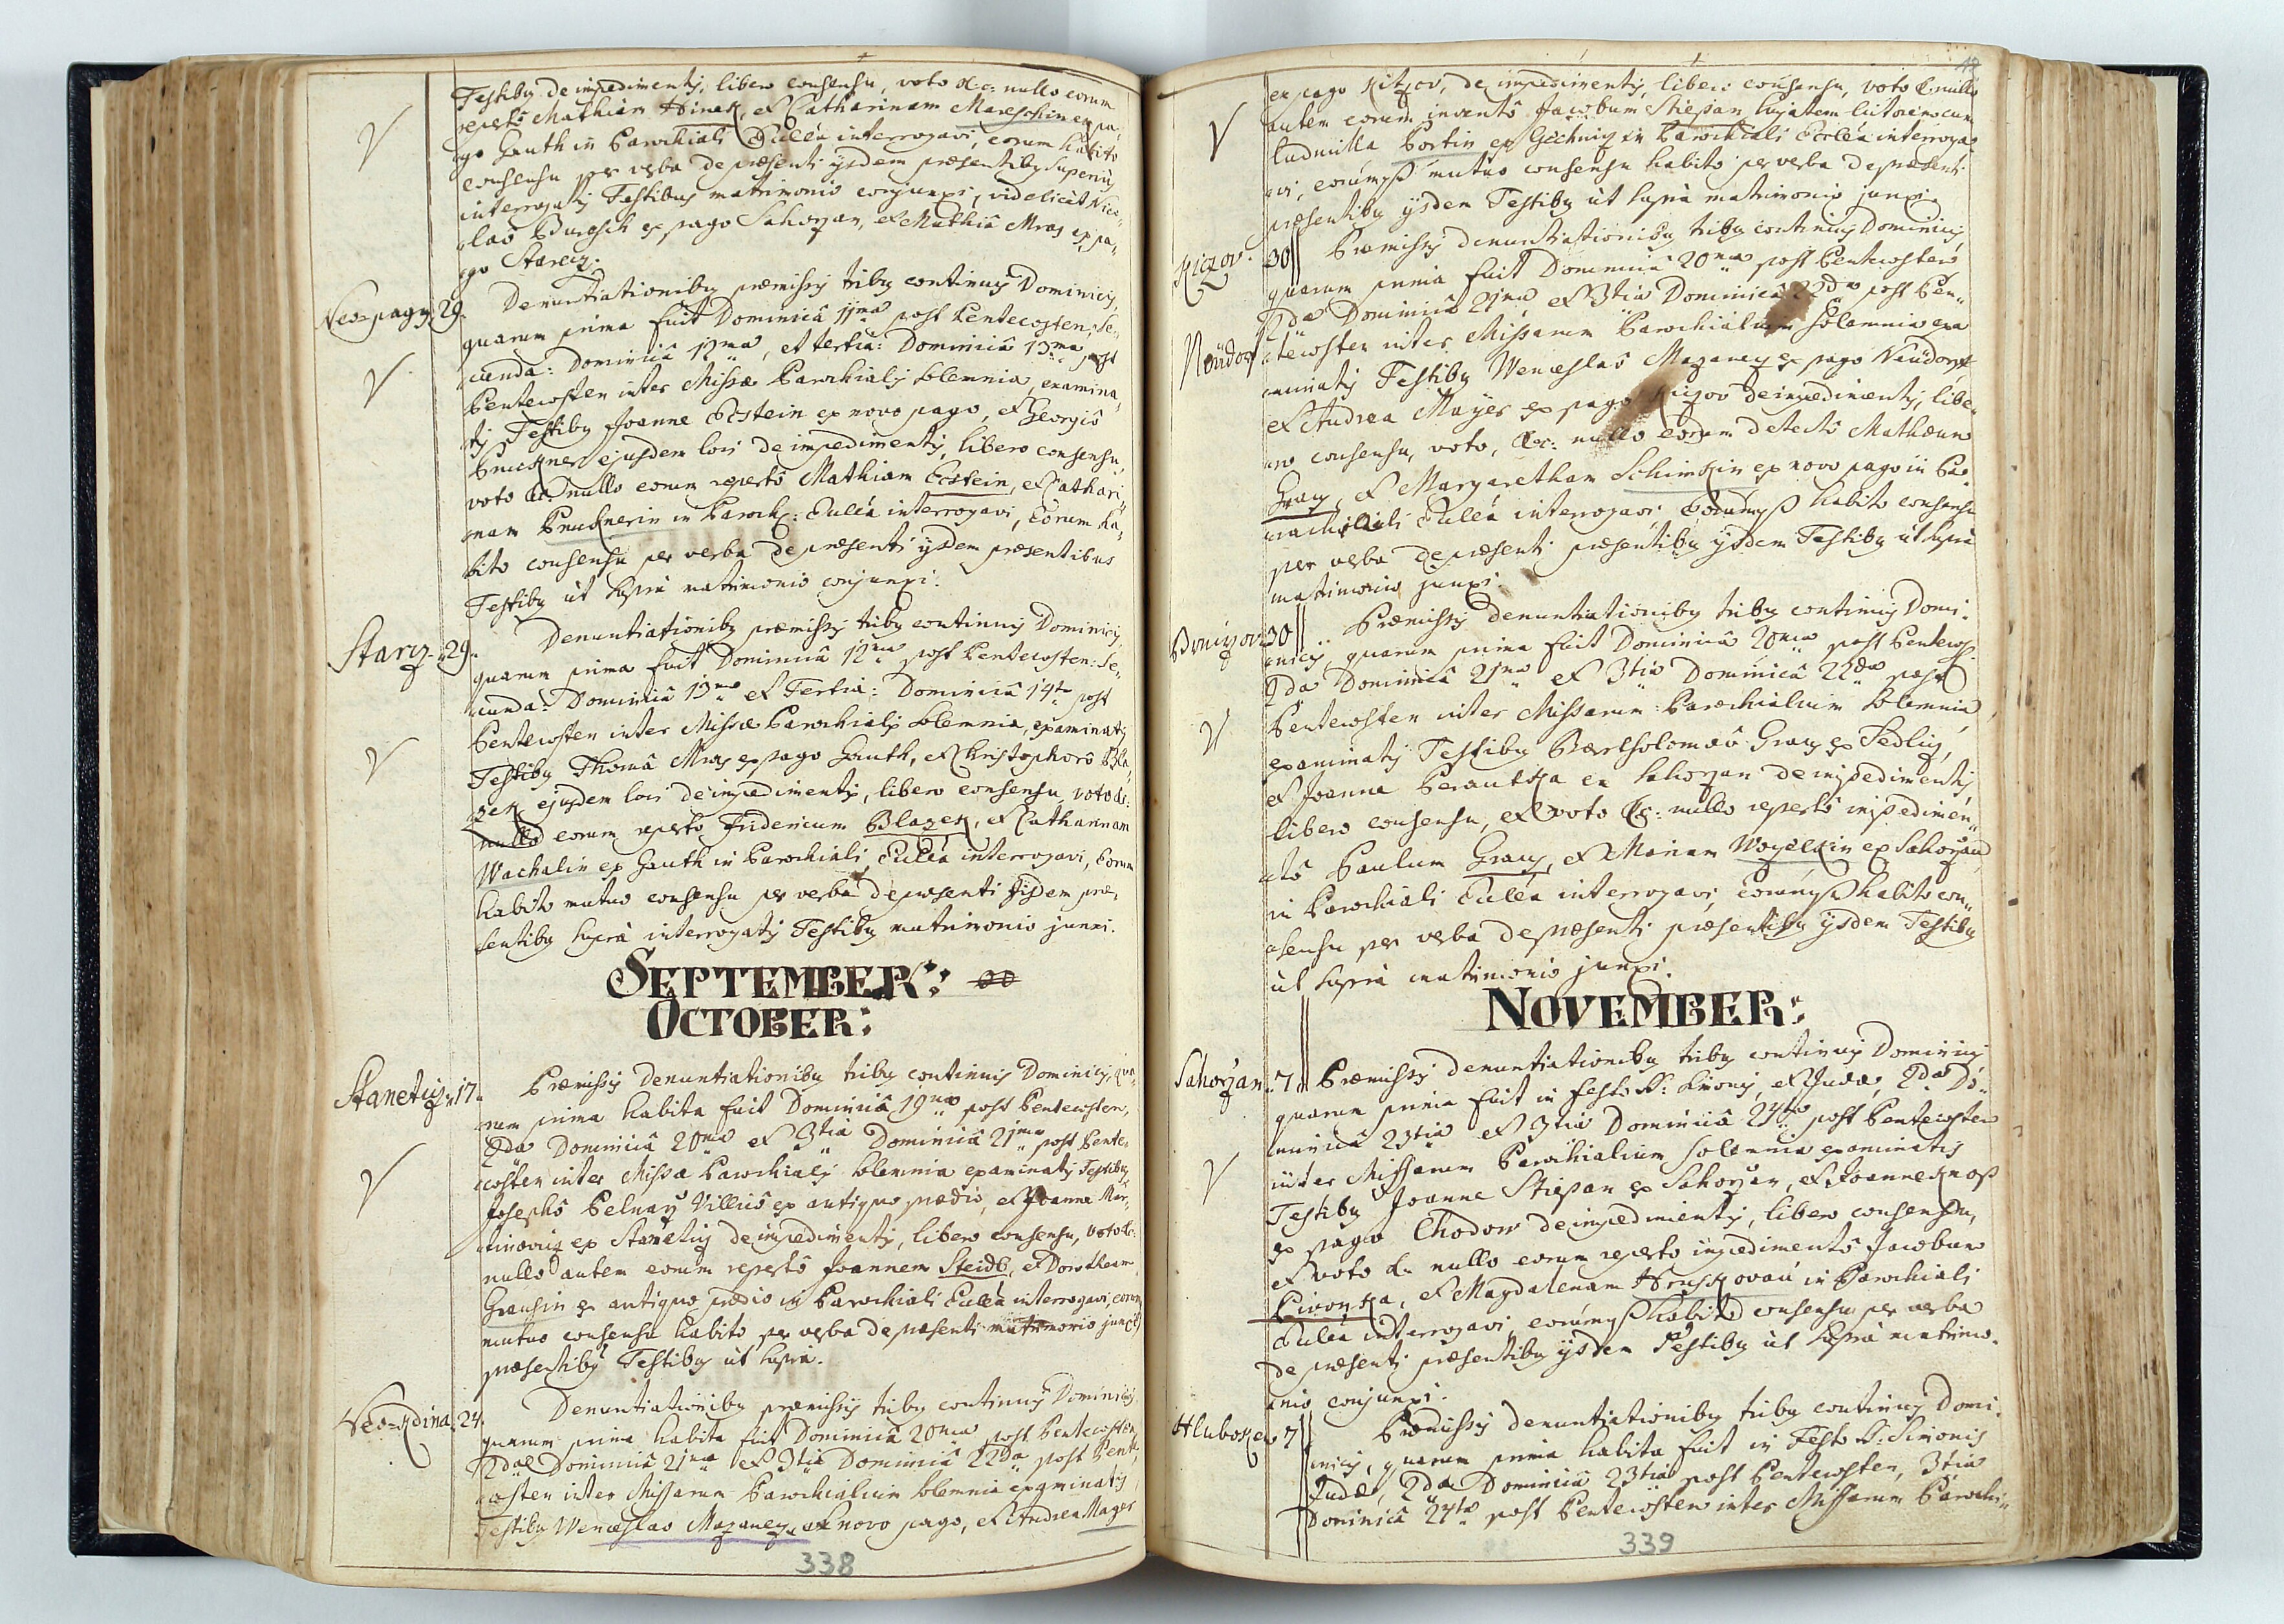 Testibꝰ de impedimentis, libero consensu, voto &c: nullo eorum
reperto Mathiam Hinek, et Catharinam Mareschin ex pa-
go Hauth in Parochiali Ecclia interrogavi, eorum habito
consensu per verba de præsenti ijsdem præsentibꝰ superius
interrogatis Testibus matrimonio conjunxi, videlicet Nico-
lao Buresch ex pago Sahorzan, et Mathia Mras ex pa-
go Starcz.
Neo=pagꝰ 29. Denuntiationibꝰ præmissis tribꝰ continuis Dominicis,
quarum prima fuit Dominicâ 11ma post Pentecosten: Se-
cunda: Dominicâ 12ma, et tertia: Dominicâ 13ma post
Pentecosten inter Missæ Parochialis solemnia, examina-
tis Testibꝰ Joanne Ecstein ex novo pago, et Georgio
Pruckner ejusdem loci de impedimentis, libero consensu,
voto &c: nullo eorum reperto Mathiam Ecstein, et Cathari-
nam Prucknerin in Paroch: Ecclia interrogavi, Eorum ha-
bito consensu per verba de præsenti ijsdem præsentibus
Testibꝰ ut supra matrimonio conjunxi.
Starcz. 29. Denuntiationibꝰ præmissis tribꝰ continuis Dominicis,
quarum prima fuit Dominicâ 12ma post Pentecosten: Se-
cunda: Dominicâ 13ma et Tertia: Dominicâ 14ta post
Pentecosten inter Missæ Parochialis solemnia, examinatis
Testibꝰ Thoma Mras ex pago Hauth, et Christophoro Bla-
zek ejusdem loci de impedimentis, libero consensu, voto &c:
nullo eorum reperto Fridericum Blazek, et Catharinam
Wachalin ex Hauth in Parochiali Ecclia interrogavi, Eorum
habito mutuo consensu per verba de præsenti ijsdem præ-
sentibꝰ supra interrogatis Testibꝰ matrimonio junxi.
SEPTEMBER: 00
OCTOBER:
Staneticz 17. Præmissis Denuntiationibꝰ tribꝰ continuis Dominicis, qua-
rum prima habita fuit Dominicâ 19na post Pentecosten,
2da Dominicâ 20ma et 3tia Dominicâ 21ma post Pente-
costen inter Missæ Parochialis solemnia examinatis Testibꝰ
Josepho Pelnarž Villico ex antiquo prædio, et Joanne Mar-
tinovic ex Staneticz de impedimentis, libero consensu, voto &c:
nullo autem eorum reperto Joannem Steidl, et Dorotheam
Grausin ex antiquo prædio in Parochiali Ecclia interrogavi, eorum
mutuo consensu habito per verba de præsenti matrimonio junxi
præsentibꝰ Testibꝰ ut supra.
Neo=Kdina. 24. Denuntiationibꝰ præmissis tribꝰ continuis Dominicis,
quarum prima habita fuit Dominicâ 20ma post Pentecosten
2da Dominicâ 21ma et 3tia Dominicâ 22da post Pente-
costen inter Missarum Parochialium solemnia examinatis
Testibꝰ Wenceslao Mazanez ex novo pago, et Andrea Mayer
338
ex pago Kitzov, de impedimentis, libero consensu, voto &c nullo
autem eorum invento Jacobum Stiepan hujatem lutorem cum
Ludmilla Portin ex Hechnicz in Parochiali Ecclia interroga-
vi, eorumqꝫ mutuo consensu habito per verba de præsenti
præsentibꝰ ijsdem Testibꝰ ut supra matrimonio junxi.
Kiczov. 30 Præmissis denuntiationibꝰ tribꝰ continuis Dominicis,
quarum prima fuit Dominicâ 20ma post Pentecosten
2da Dominicâ 21ma et 3tia Dominicâ 22da post Pen-
Neüdorf tecosten inter Missarum Parochialium solemnia exa
minatis Testibꝰ Wenceslao Mazanez ex pago Neüdorf,
et Andrea Mayer ex pago Kiczov de impedimentis, libe-
ro consensu, voto, &c: nullo eorum detecto Mathæum
Graus, et Margaretham Schimkin ex novo pago in Pa-
rochiali Ecclia interrogavi, Eorumqꝫ habito consensu
per verba de præsenti præsentibꝰ ijsdem Testibꝰ ut supra
matrimonio junxi.
Brnizov 30 Præmissis denuntiationibꝰ tribꝰ continuis Domi-
nicis, quarum prima fuit Dominicâ 20ma post Pentecost
2da Dominicâ 21ma et 3tia Dominicâ 22da post
Pentecosten inter Missarum Parochialium solemnia,
examinatis Testibꝰ Bartholomæo Graus ex Sedlicz,
et Joanne Berautka ex Sahorzan de impedimentis
libero consensu, et voto &c: nullo reperto impedimen-
to Paulum Graus, et Mariam Wogelkin ex Sahorzan
in Parochiali Ecclia interrogavi, eorumqꝫ habito con-
sensu per verba de præsenti præsentibꝰ ijsdem Testibꝰ
ut supra matrimonio junxi.
NOVEMBER:
Sahorzan. 7. Præmissis denuntiationibꝰ tribꝰ continuis Dominicis
quarum prima fuit in festo S: Simonis, et Judæ, 2da Do-
minicâ 23tia et 3tia Dominicâ 24ta post Pentecosten
inter Missarum Parochialium solemnia examinatis
Testibꝰ Joanne Stiepan ex Sahorzan, et Joanne Knoß
ex pago Chodow de impedimentis, libero consensu,
et voto &c nullo eorum reperto impedimento Jacobum
Piwonka, et Magdalenam Hruskovan in Parochiali
Ecclia interrogavi eorumqꝫ habito consensu per verba
de præsenti præsentibꝰ ijsdem Testibꝰ ut supra matrimo-
nio conjunxi.
Hluboken 7 Præmissis denuntiationibꝰ tribꝰ continuis Domi-
nicis, quarum prima habita fuit in Festo S: Simonis
Judæ, 2da Dominicâ 23tia post Pentecosten, 3tia
Dominicâ 24ta post Pentecosten inter Missarum Parochi-
339